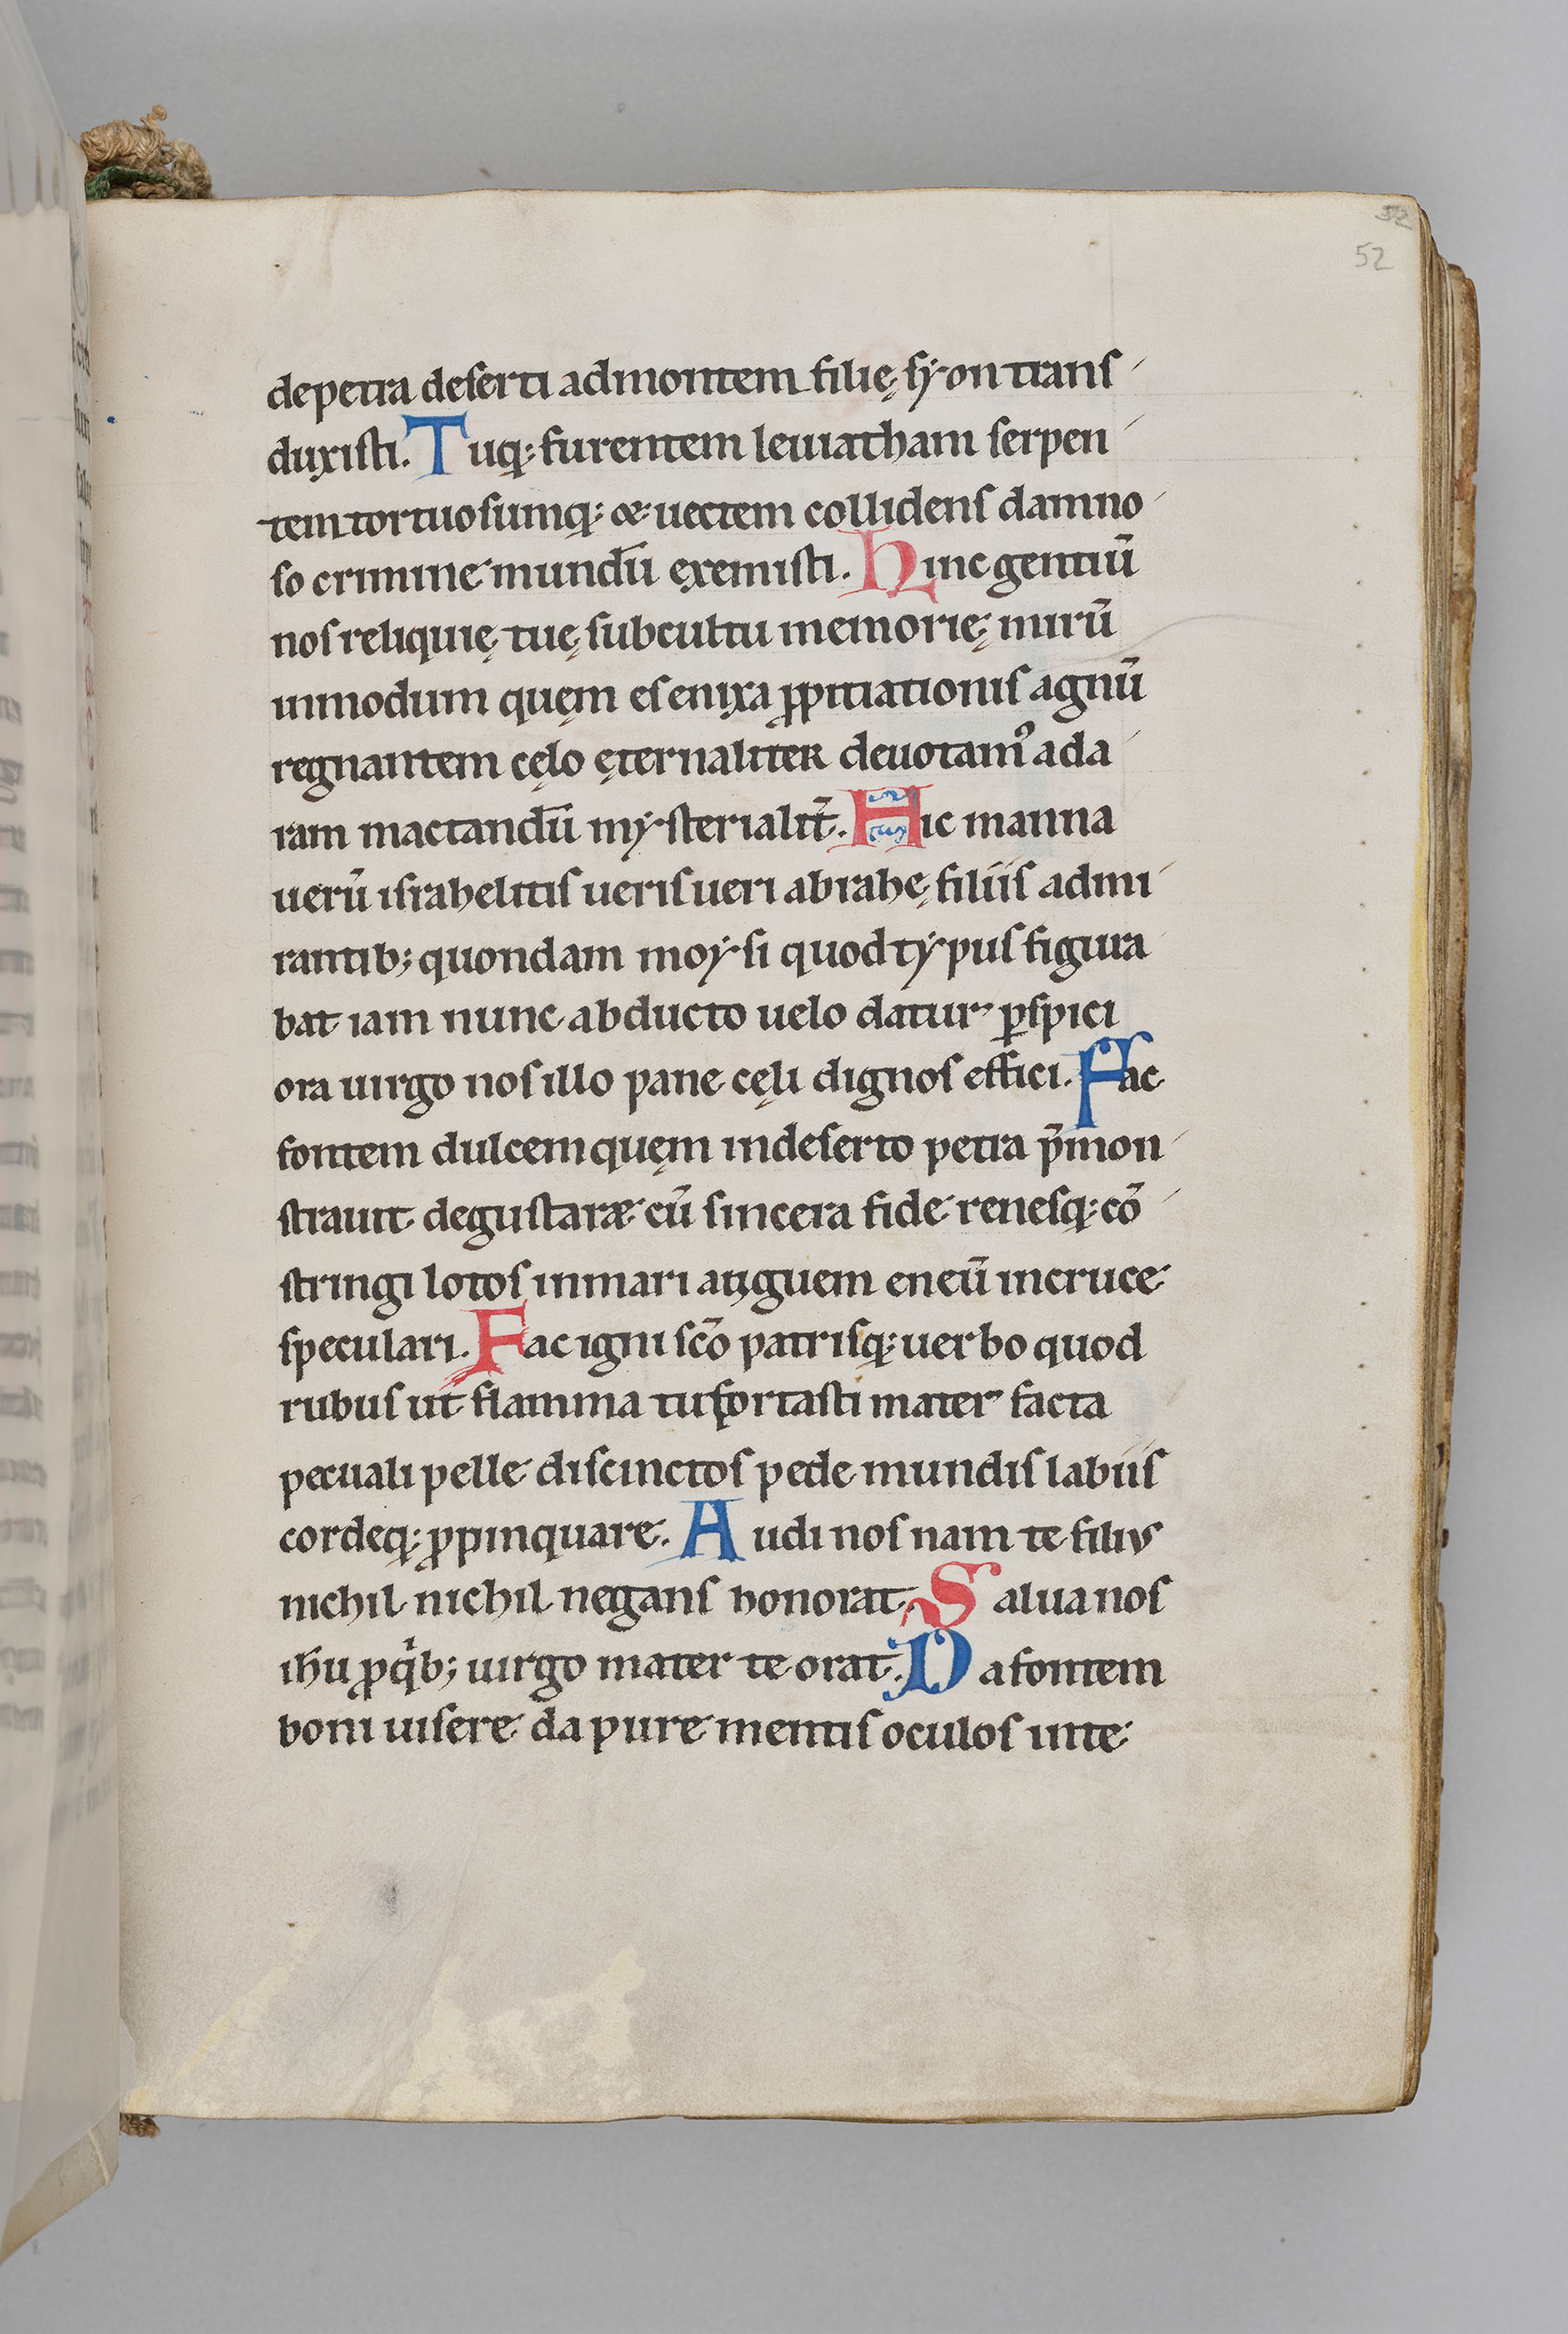 52
52
depetra deserti admontem filię sẏon trans
duxisti. Tuq; furentem leuiatham serpen
tem tortuosumq; & uectem collidens damno
so crimine mundū exemisti. Hinc gentiū
nos reliquię tuę subcultu memorię mirū
inmodum quęm es enixa ꝓpitiationis agnū
regnantem cęlo ęternaliter deuotamꝰ ada
ram mactandū mẏsterialit̄. Hic manna
uerū israhelitis ueris ueri abrahę filiis admi
rantib; quondam moẏsi quod tẏpus figura
bat iam nunc abducto uelo datur ꝑspici
ora uirgo nos illo pane cęli dignos effici. Fac
fontem dulcem quęm indeserto petra p̄mon
strauit degustaræ cū sincera fide renesq; cō
stringi lotos inmari anguem eneū incruce
speculari. Fac igni scō patrisq; uerbo quod
rubus ut flamma tu portasti mater facta
pecuali pelle discinctos pede mundis labiis
cordeq; ꝓpinquare. Audi nos nam te filius
nichil nichil negans honorat. Salua nos
ih̄u ꝓ qͥb; uirgo mater te orat. Da fontem
boni uisere da pure mentis oculos inte